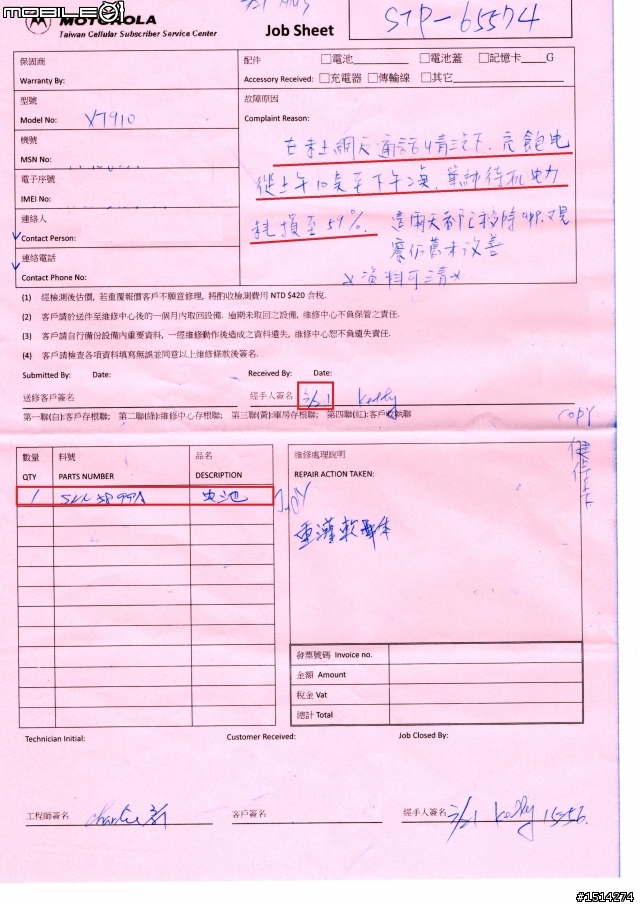 mobile01
MOTOROLA
Taiwan Cellular Subscriber Service Center
Job Sheet
STP-65574
保固商
Warranty By:
配件 □電池 □電池蓋 □記憶卡 G
Accessory Received: □充電器 □傳輸線 □其它
型號
Model No: XT910
故障原因
Complaint Reason:
機號
MSN No:
在未上網及通話情況下,充飽電
從上午10點至下午2點,單純待機電力
耗損至59%. 這兩天都已移除
察仍舊未改善
電子序號
IMEI No:
連絡人
Contact Person:
連絡電話
Contact Phone No:
x資料可清x
(1) 經檢測後估價, 若重覆報價客戶不願意修理, 將酌收檢測費用 NTD $420 含稅.
(2) 客戶請於送件至維修中心後的一個月內取回設備. 逾期未取回之設備, 維修中心不負保管之責任.
(3) 客戶請自行備份設備內重要資料, 一經維修動作後造成之資料遺失, 維修中心恕不負遺失責任.
(4) 客戶請檢查各項資料填寫無誤並同意以上維修條款後簽名.
Submitted By: Date: Received By: Date:
送修客戶簽名 經手人簽名 3/21 Kelly
第一聯(白):客戶存根聯; 第二聯(綠):維修中心存根聯; 第三聯(黃):庫房存根聯; 第四聯(紅):客戶收執聯
copy
數量 料號 品名
QTY PARTS NUMBER DESCRIPTION
維修處理說明
REPAIR ACTION TAKEN:
1 電池
重灌軟體
發票號碼 Invoice no.
金額 Amount
稅金 Vat
總計 Total
Technician Initial: Customer Received: Job Closed By:
工程師簽名 Charlie 客戶簽名 經手人簽名 3/21 Kelly 1556
#1514274